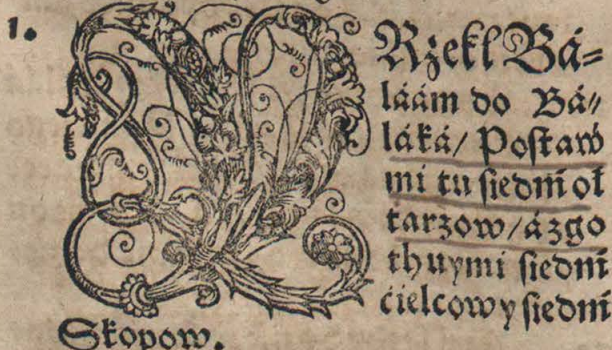 1.
URzekł Bá⸗
láám do Bá⸗
láká/ Postaẃ
mi tu siedḿ oł
tarzow/ á zgo
thuy mi siedḿ
ćielcow y siedḿ
Skopow.